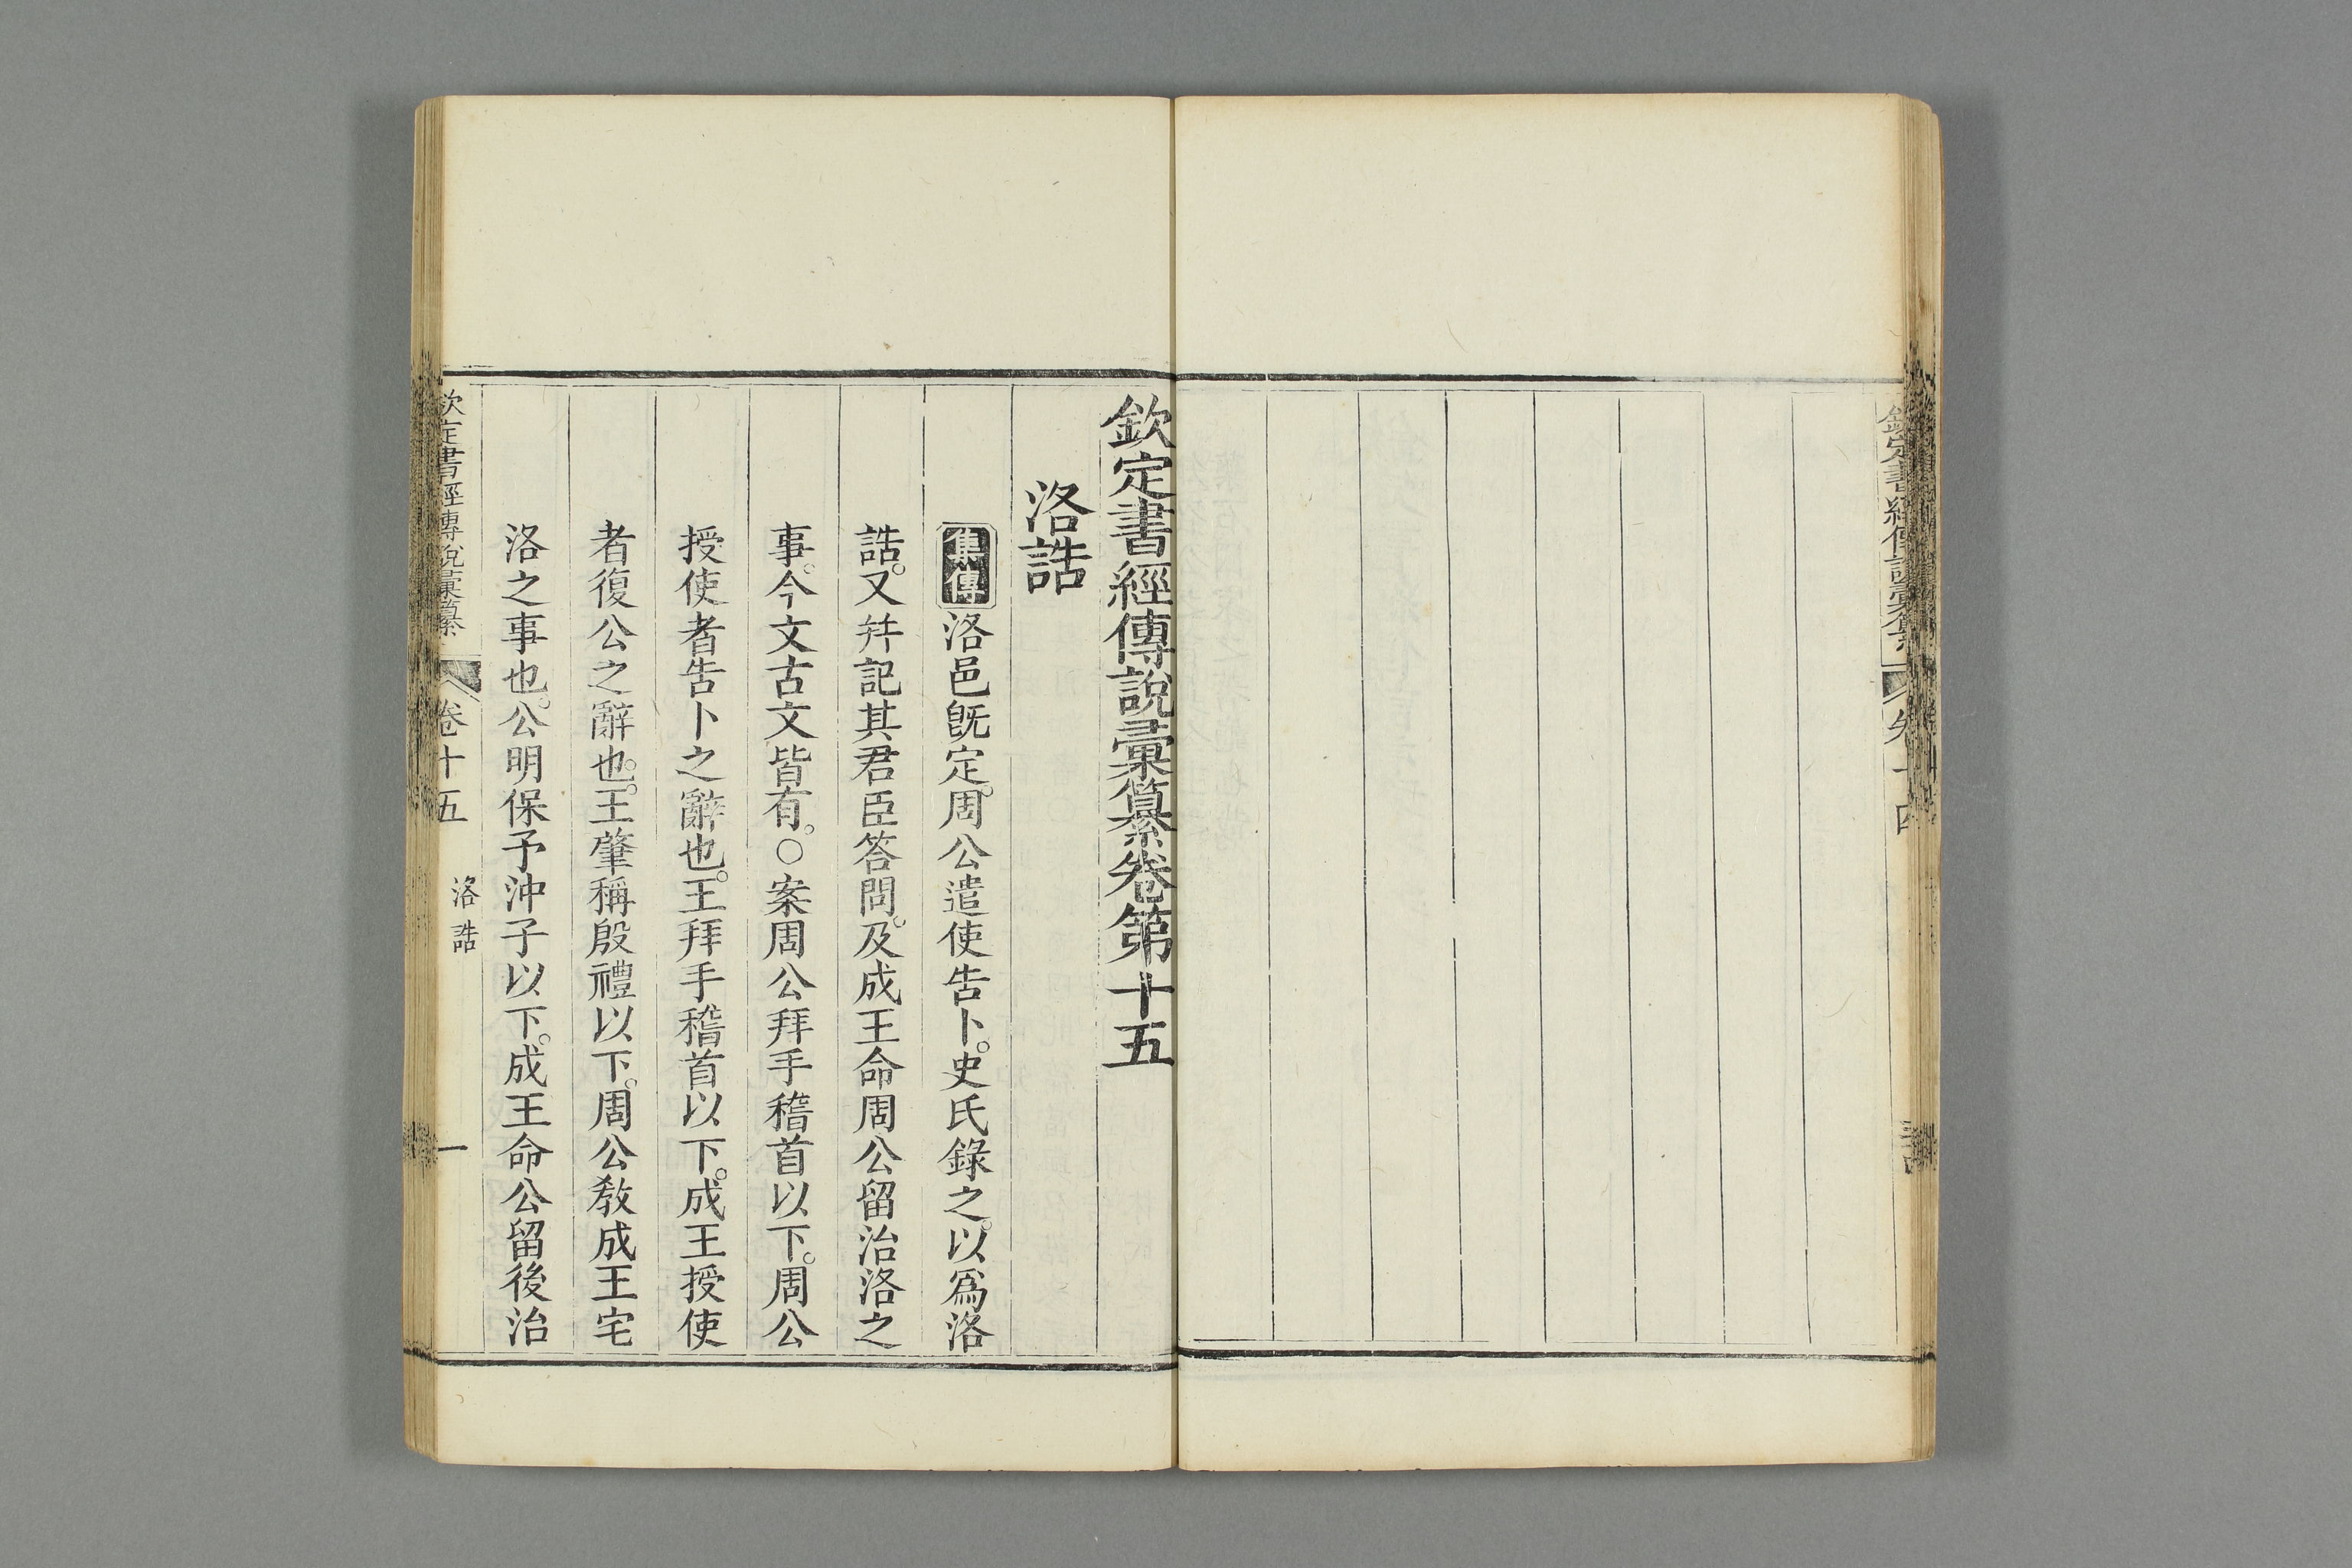 欽定書經傳說彙纂卷第十五
洛誥
集傳洛邑旣定。周公遣使告卜。史氏錄之。以爲洛
誥。又幷記其君臣答問。及成王命周公留治洛之
事。今文古文皆有。○案周公拜手稽首以下。周公
授使者告卜之辭也。王拜手稽首以下。成王授使
者復公之辭也。王肇稱殷禮以下。周公敎成王宅
洛之事也。公明保予沖子以下。成王命公留後治
欽定書經傳說彙纂 卷十五 洛誥 一